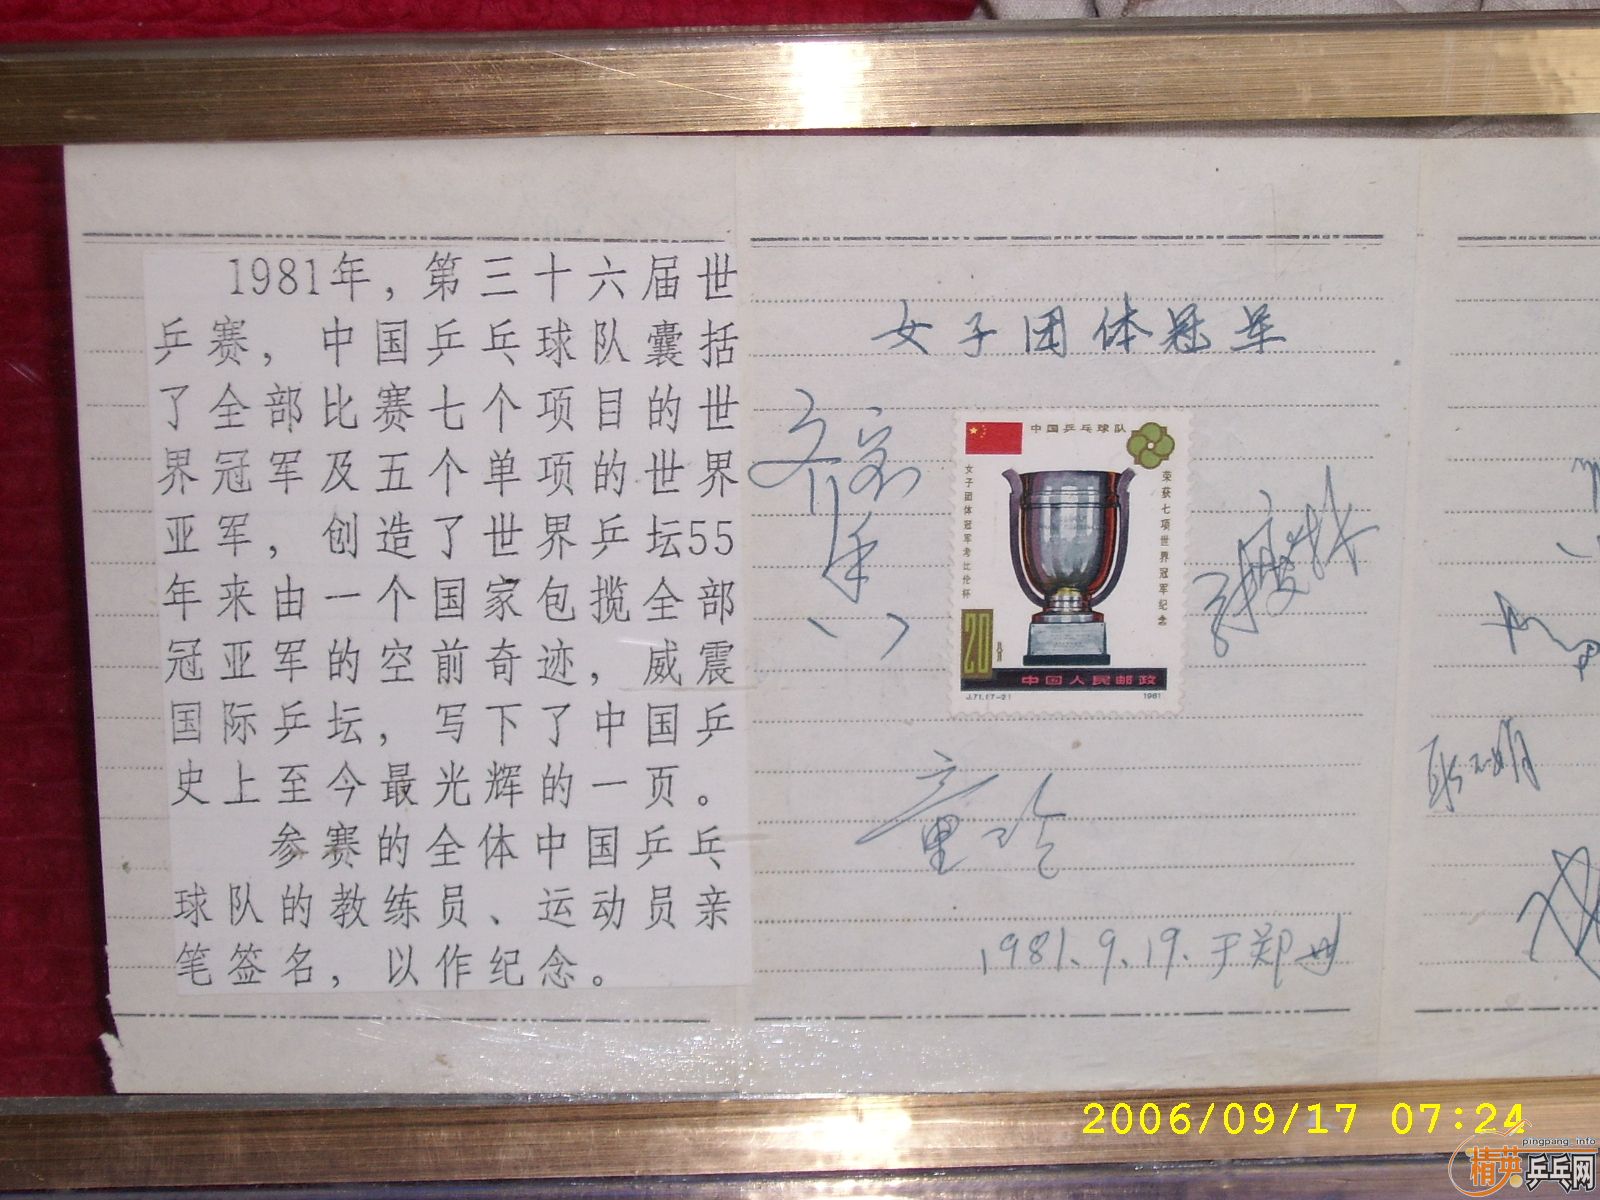 1981年，第三十六届世
乒赛，中国乒乓球队囊括
了全部比赛七个项目的世
界冠军及五个单项的世界
亚军，创造了世界乒坛55
年来由一个国家包揽全部
冠亚军的空前奇迹，威震
国际乒坛，写下了中国乒
史上至今最光辉的一页。
参赛的全体中国乒乓
球队的教练员、运动员亲
笔签名，以作纪念。
女子团体冠军
中国乒乓球队
女子团体冠军考比伦杯
荣获七项世界冠军纪念
20分
中国人民邮政
J.71.(7-2)
1981
齐宝香
张德英
童玲
1981.9.19.于郑州
耿丽娟
2006/09/17 07:24
pingpang_info
精英乒乓网